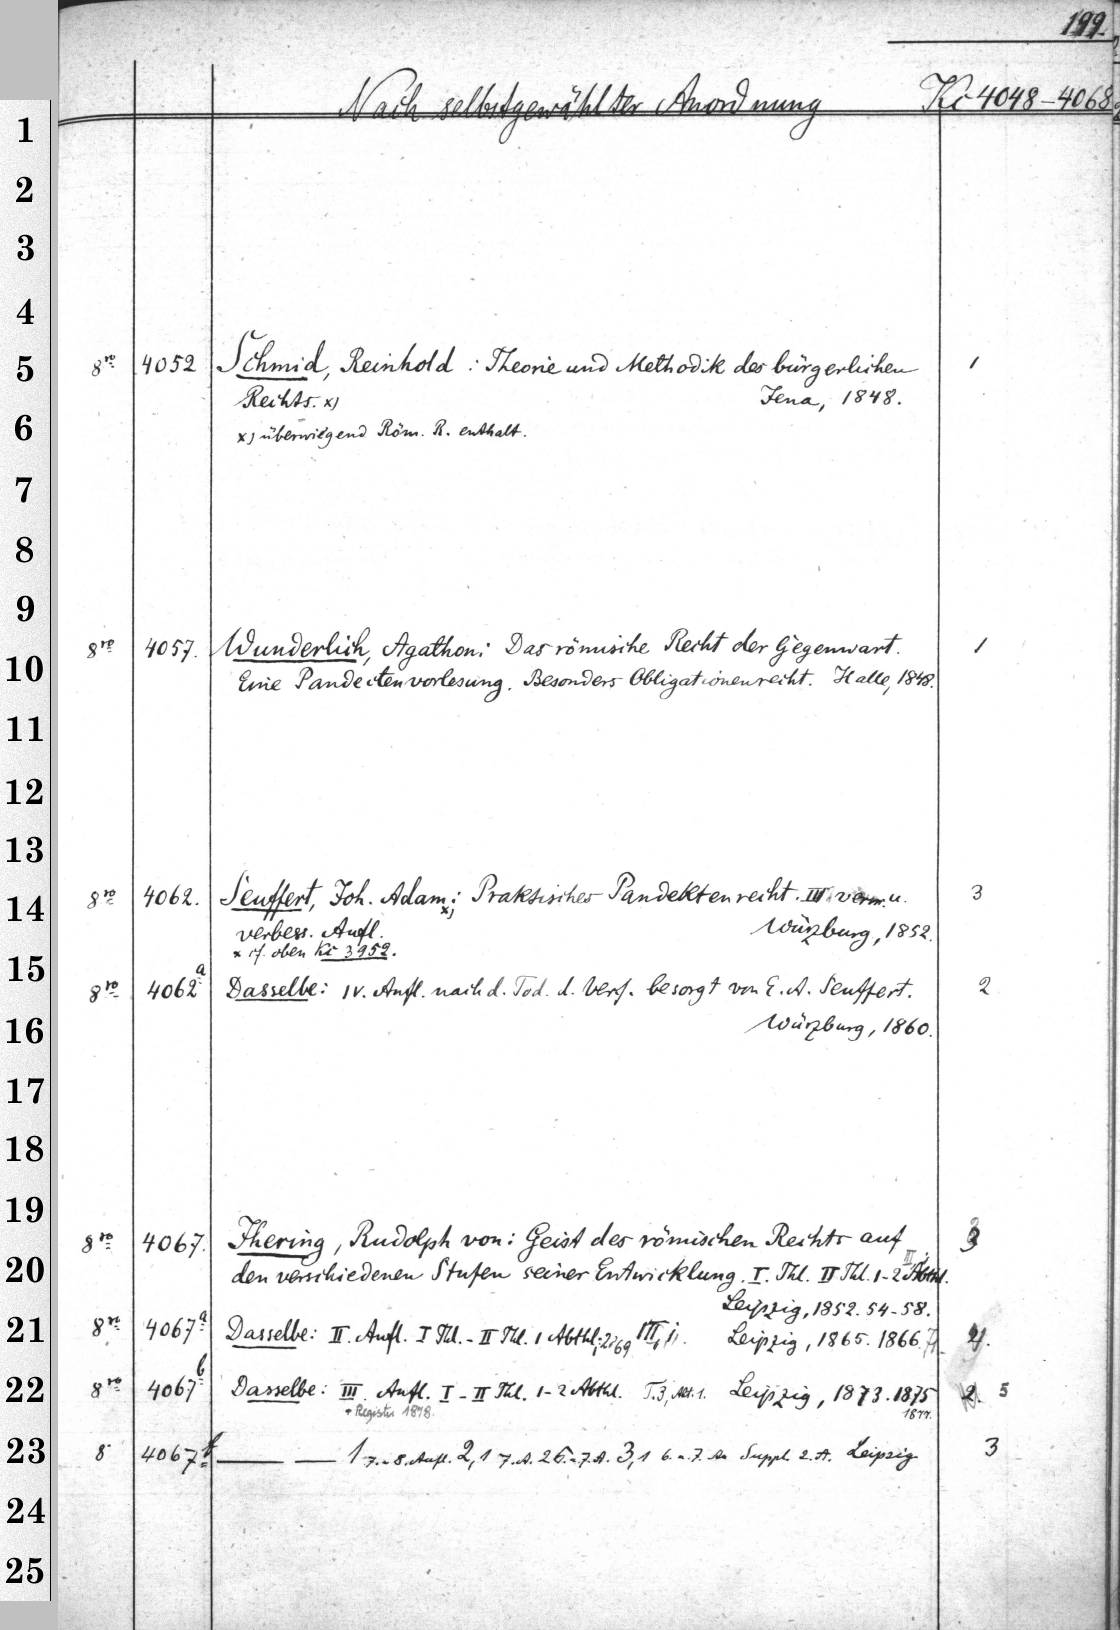 199.
Nach selbstgewählter Anordnung Ki 4048-4068
1
2
3
4
5 8ro 4052 Schmid, Reinhold : Theorie und Methodik des bürgerlichen 1
Rechts. x) Jena, 1848.
6 x) überwiegend Röm. R. enthalt.
7
8
9
8ro 4057. Wunderlich, Agathon: Das römische Recht der Gegenwart. 1
10 Eine Pandectenvorlesung. Besonders Obligationenrecht. Halle, 1848.
11
12
13
14 8ro 4062. Seuffert, Joh. Adam x): Praktisches Pandektenrecht. III verm. u. 3
verbess. Aufl. Würzburg, 1852.
x cf. oben Ki 3952.
15 8ro 4062a Dasselbe: IV. Aufl. nach d. Tod. d. Verf. besorgt von E. A. Seuffert. 2
16 Würzburg, 1860.
17
18
19
8ro 4067. Jhering, Rudolph von: Geist des römischen Rechts auf 3
20 den verschiedenen Stufen seiner Entwicklung. I. Thl. II Thl. 1-2 Abthl.
Leipzig, 1852. 54-58.
21 8ro 4067a Dasselbe: II. Aufl. I Thl. - II Thl. 1 Abthl; 2, 69 III, 1. Leipzig, 1865. 1866. 4.
22 8ro 4067b Dasselbe: III. Aufl. I - II Thl. 1-2 Abthl. T.3, Abt. 1. Leipzig, 1873. 1875 2. 5
+ Register 1878. 1877.
23 8 4067 — — 1 7.-8. Aufl. 2,1 7. A. 2 6.-7. A. 3,1 6. u. 7. Suppl. 2. A. Leipzig 3
24
25